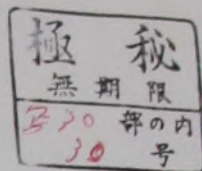 極秘
無期限
30部の内
30号